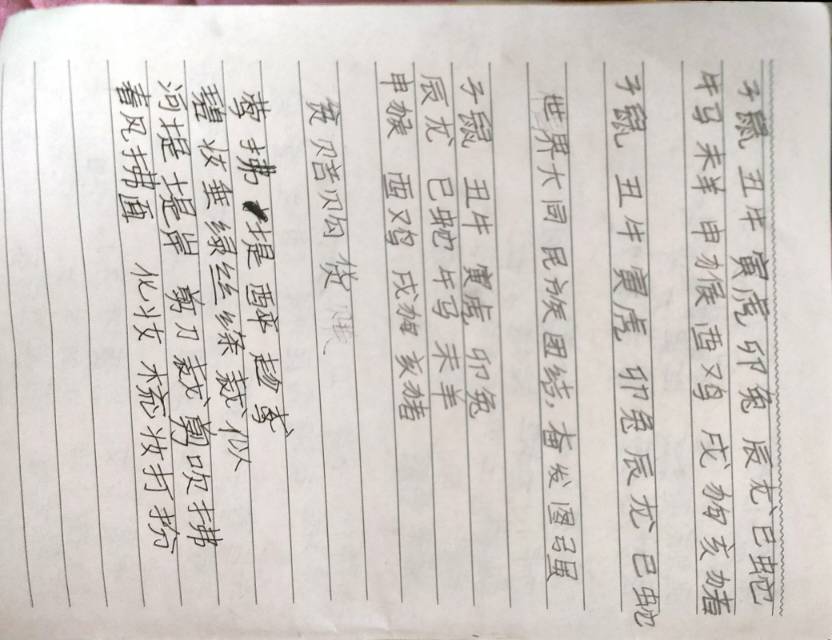 子鼠 丑牛 寅虎 卯兔 辰龙 巳蛇
午马 未羊 申猴 酉鸡 戌狗 亥猪
子鼠 丑牛 寅虎 卯兔 辰龙 巳蛇
世界大同 民族团结，奋发图强
子鼠 丑牛 寅虎 卯兔
辰龙 巳蛇 午马 未羊
申猴 酉鸡 戌狗 亥猪
贫 赔 购 货
莺 拂 堤 醉 趁
碧 妆 垂 绿 丝 绦 裁 似
河堤 堤岸 剪刀 裁剪 吹拂
春风拂面 化妆 梳妆打扮